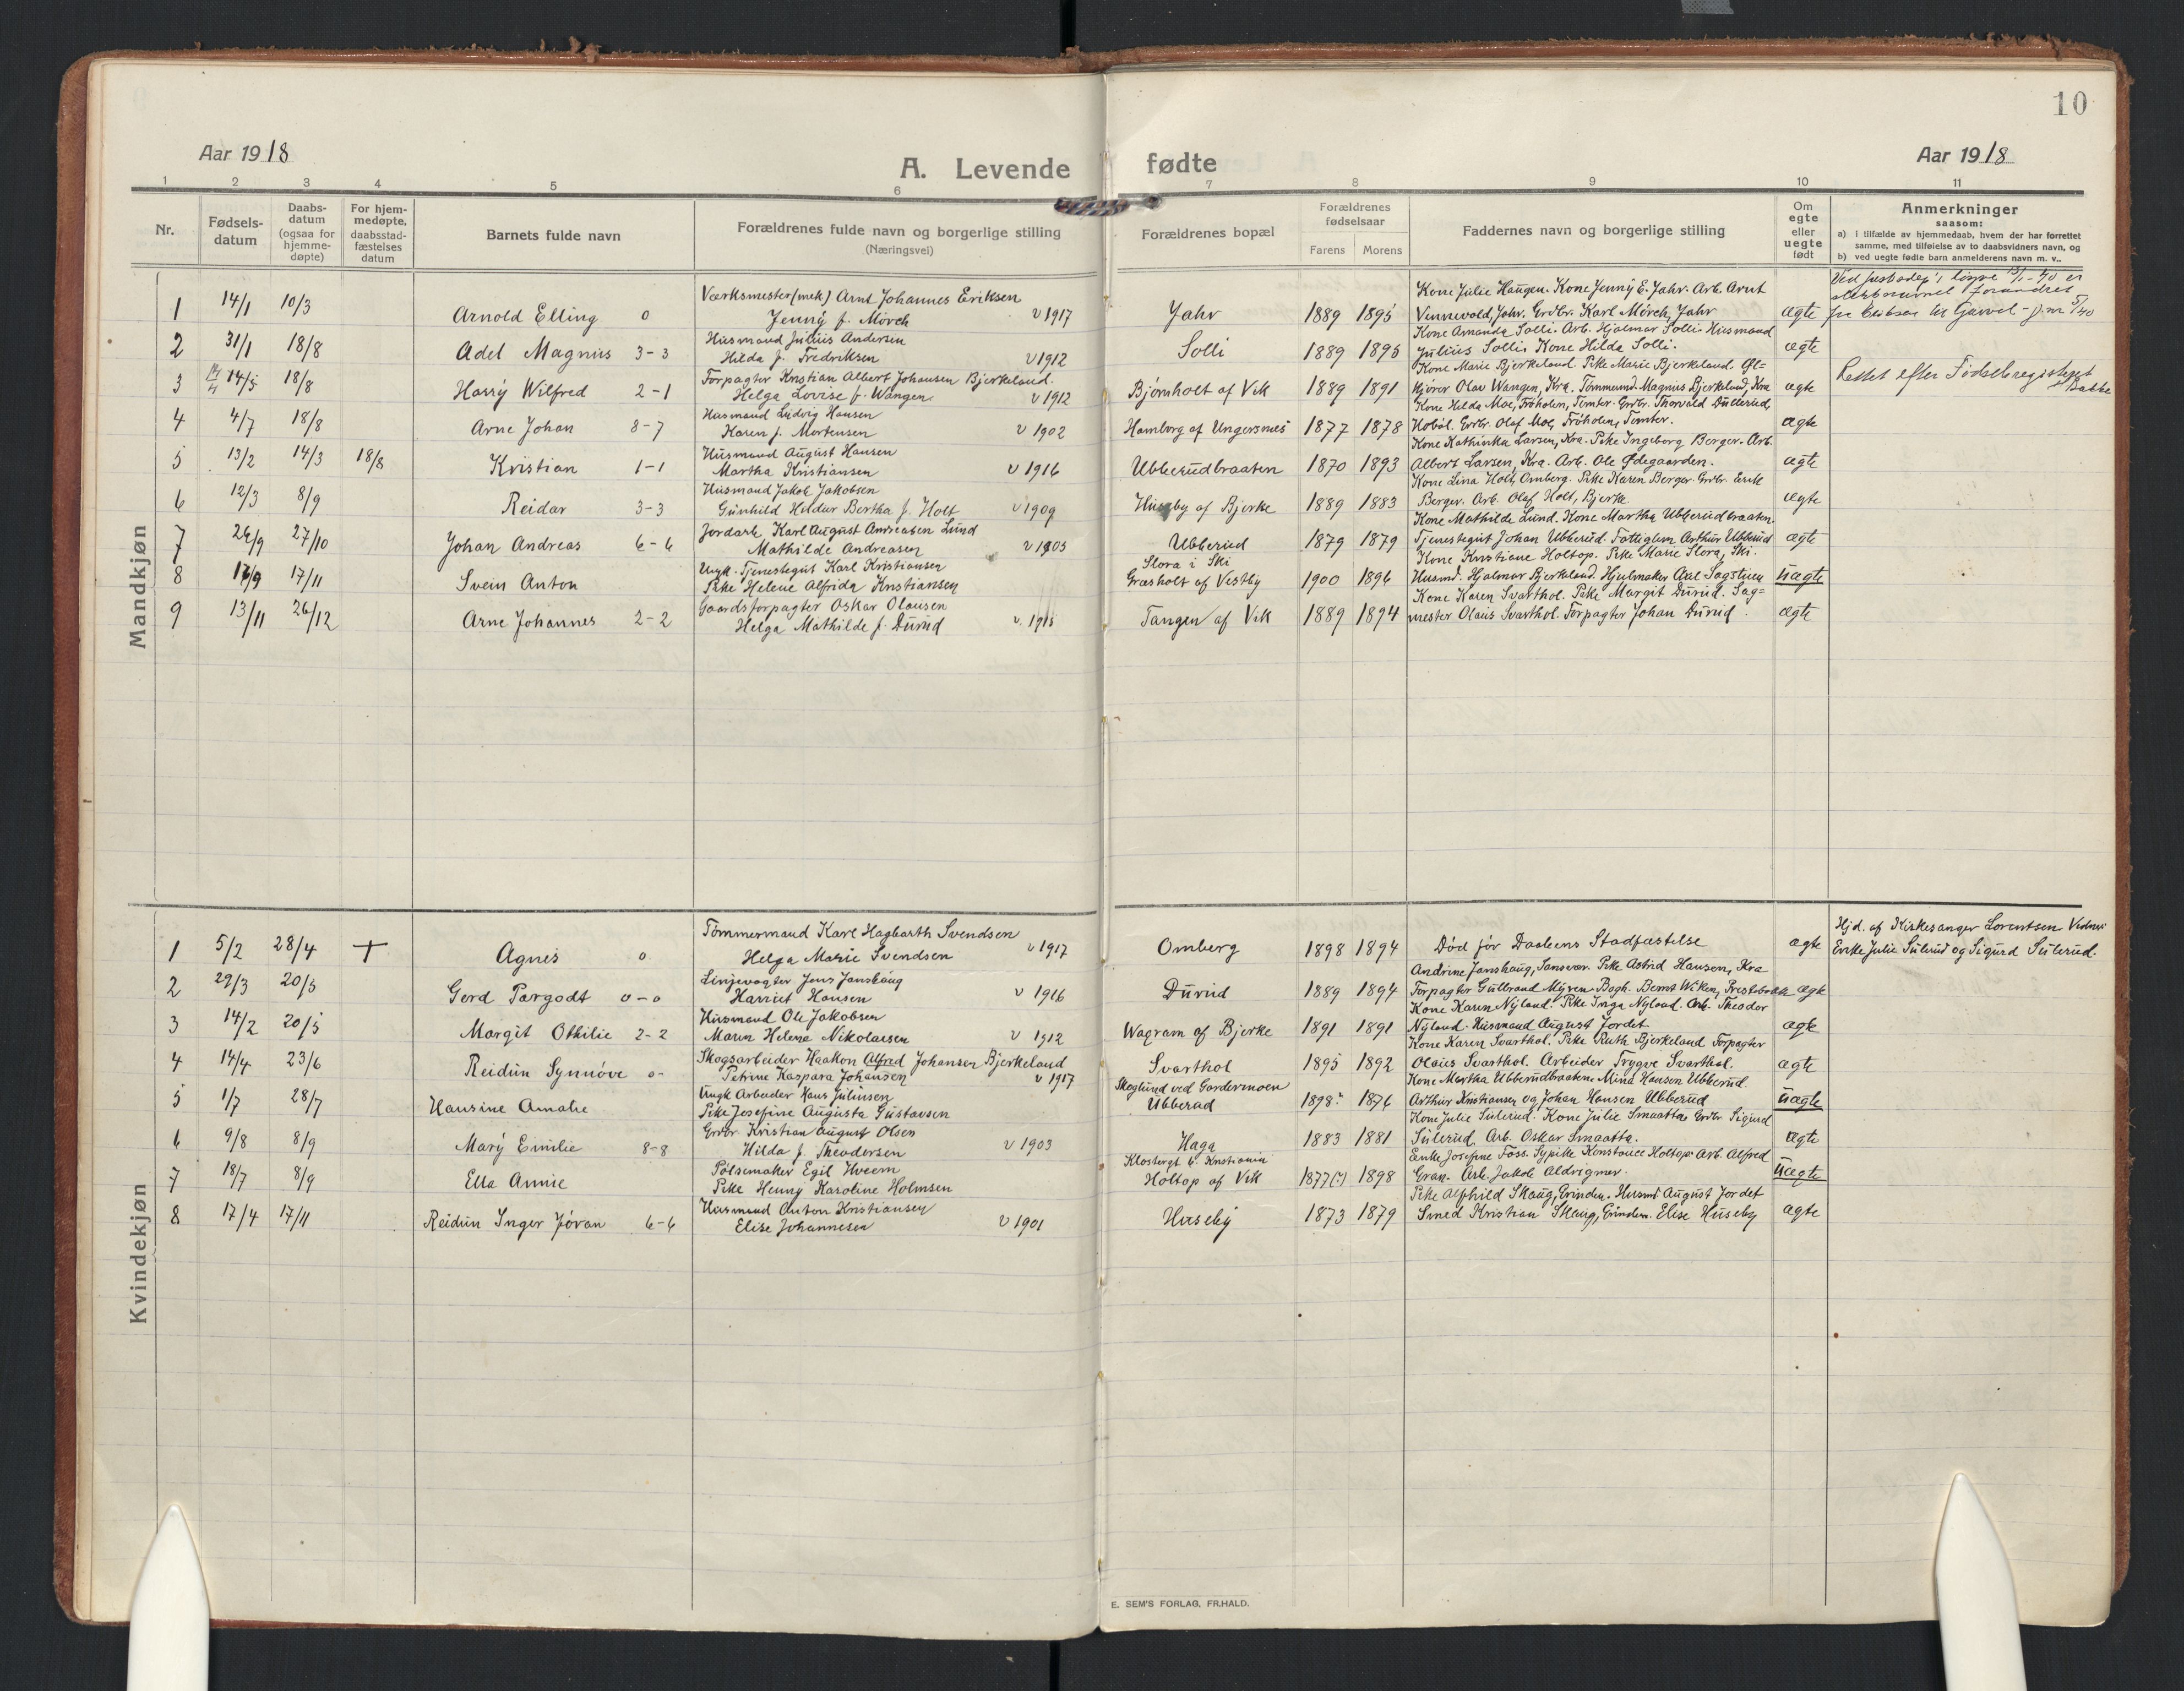 10
Aar 1918
A. Levende fødte
Aar 1918
1 2 3 4 5 6 7 8 9 10 11
Nr.
Fødsels-
datum
Daabs-
datum
(ogsaa for
hjemme-
døpte)
For hjem-
medøpte,
daabsstad-
fæstelses
datum
Barnets fulde navn
Forældrenes fulde navn og borgerlige stilling
(Næringsvei)
Forældrenes bopæl
Forældrenes
fødselsaar
Farens Morens
Faddernes navn og borgerlige stilling
Om
egte
eller
uegte
født
Anmerkninger
saasom:
a) i tilfælde av hjemmedaab, hvem der har forrettet
samme, med tilføielse av to daabsvidners navn, og
b) ved uegte fødte barn anmelderens navn m. v..
Mandkjøn
1 14/1 10/3 Arnold Elling 0
Værksmester (mek.) Arnt Johannes Eriksen
Jenny f. Mörch v 1917
Jahr 1889 1895
Kone Julie Haugen. Kone Jenny E. Jahr. Arb. Arnt
Vinnevold, Jahr. Grdbr. Karl Mörch, Jahr
ægte
2 31/1 18/8 Adel Magnus 3-3
Husmand Julius Andersen
Hilda f. Fredriksen v 1912
Solli 1889 1895
Kone Amanda Solli. Arb. Hjalmar Solli. Husmand
Julius Solli. Kone Hilda Solli.
ægte
3 14/5 18/8 Harry Wilfred 2-1
Forpagter Kristian Albert Johansen Bjerkeland.
Helga Lovise f. Wangen v 1912
Bjørnholt af Vik 1889 1891
Kone Marie Bjerkeland. Pike Marie Bjerkeland. Gl=
kjörer Olav Wangen, Kra. Tömmermd. Magnus Bjerkeland, Kra
ægte
Rettet efter Fødselsregisteret
4 4/7 18/8 Arne Johan 8-7
Husmand Ludvig Hansen
Karen f. Mortensen v 1902
Hamborg af Ungersnes 1877 1878
Kone Hilda Moe, Fröholen, Tomter. Grdbr. Thorvald Dullerud,
Hobøl. Grdbr. Olaf Moe, Fröholen, Tomter.
ægte
5 13/2 14/3 18/8 Kristian 1-1
Husmand August Hansen
Martha Kristiansen v 1916
Ubberudbraaten 1870 1893
Kone Kathinka Larsen, Kra. Pike Ingeborg Berger. Arb.
Albert Larsen, Kra. Arb. Ole Ødegaarden.
ægte
6 12/3 8/9 Reidar 3-3
Husmand Jakob Jakobsen
Gunhild Hildur Bertha f. Holt v 1909
Huseby af Bjerke 1889 1883
Kone Lina Holt, Omberg. Pike Karen Berger. Grdbr. Enok
Berger. Arb. Olaf Holt, Bjerke
ægte
7 26/9 27/10 Johan Andreas 6-6
Jordarb. Karl August Andreasen Lund
Mathilde Andreasen v 1905
Ubberud 1879 1879
Kone Mathilde Lund. Kone Martha Ubberudbraaten.
Tjenestegut Johan Ubberud. Fattiglem Arthur Ubberud
ægte
8 17/11 Svein Anton
Ungk. Tjenestegut Karl Kristiansen
Pike Helene Alfrida Kristiansen
Slora i Ski
Græsholt af Vestby 1900 1896
Kone Kristiane Holtop. Pike Marie Slora, Ski.
Husmd. Hjalmar Bjerkeland. Hjulmaker Axel Sagstuen
uægte
9 13/11 26/12 Arne Johannes 2-2
Gaardsforpagter Oskar Olausen
Helga Mathilde f. Durud v. 1915
Tangen af Vik 1889 1894
Kone Karen Svarthol. Pike Margit Durud. Sag=
mester Olaus Svarthol. Forpagter Johan Durud.
ægte
Kvindekjøn
1 5/2 28/4 + Agnes 0
Tömmermand Karl Hagbarth Svendsen
Helga Marie Svendsen v 1917
Omberg 1898 1894
Død før Daabens Stadfæstelse
ægte
Hjd. af Kirkesanger Lorentsen
Enke Julie Sulerud og Sigurd Sulerud.
2 29/3 20/5 Gerd Torgodt 0-0
Linjevogter Jens Janshaug
Harriet Hansen v 1916
Durud 1889 1894
Andrine Janshaug, Sonsveien. Pike Astrid Hansen, Kra
Forpagter Gulbrand Myren. Bagh. Bernt Wiken, Prestebakke
ægte
3 14/2 20/5 Margit Othilie 2-2
Husmand Ole Jakobsen
Maren Helene Nikolaisen v 1912
Wagram af Bjerke 1891 1891
Kone Karen Nyland. Pike Inga Nyland. Arb. Theodor
Nyland. Husmand August Jordet.
ægte
4 14/4 23/6 Reidun Synnøve 0-
Skogsarbeider Haakon Alfred Johansen Bjerkeland
Petrine Kaspara Johansen v 1917
Svarthol 1895 1892
Kone Karen Svarthol. Pike Ruth Bjerkeland. Forpagter
Olaus Svarthol. Arbeider Trygve Svarthol.
ægte
5 1/7 28/7 Hansine Amalie
Ungk. Arbeider Hans Juliusen
Pike Josefine Augusta Gustavsen
Skoglund ved Gardermoen
Ubberud 1898? 1876
Kone Martha Ubberudbraaten. Mina Hansen Ubberud.
Arthur Kristiansen og Johan Hansen Ubberud
uægte
6 9/8 8/9 Mary Emilie 8-8
Grdbr. Kristian August Olsen
Hilda f. Theodorsen v 1903
Haga 1883 1881
Kone Julie Sulerud. Kone Julie Smaatta. Grdbr. Sigurd
Sulerud. Arb. Oskar Smaatta.
ægte
7 18/7 8/9 Ella Annie
Pölsemaker Egil Hveem
Pike Henny Karoline Holmsen
Klostergt 6. Kristiania
Holtop af Vik 1877(?) 1898
Enke Josefine Foss. Sypike Konstance Holtop. Arb. Alfred
Gran. Arb. Jakob Aldrigmer.
uægte
8 17/4 17/11 Reidun Inger Jóvan 6-6
Husmand Anton Kristiansen
Elise Johannesen v 1901
Huseby 1873 1879
Pike Alfhild Skaug, Grinden. Husmd August Jordet
Smed Kristian Skaug, Grinden. Elise Huseby
ægte
E. SEM'S FORLAG, FR.HALD.